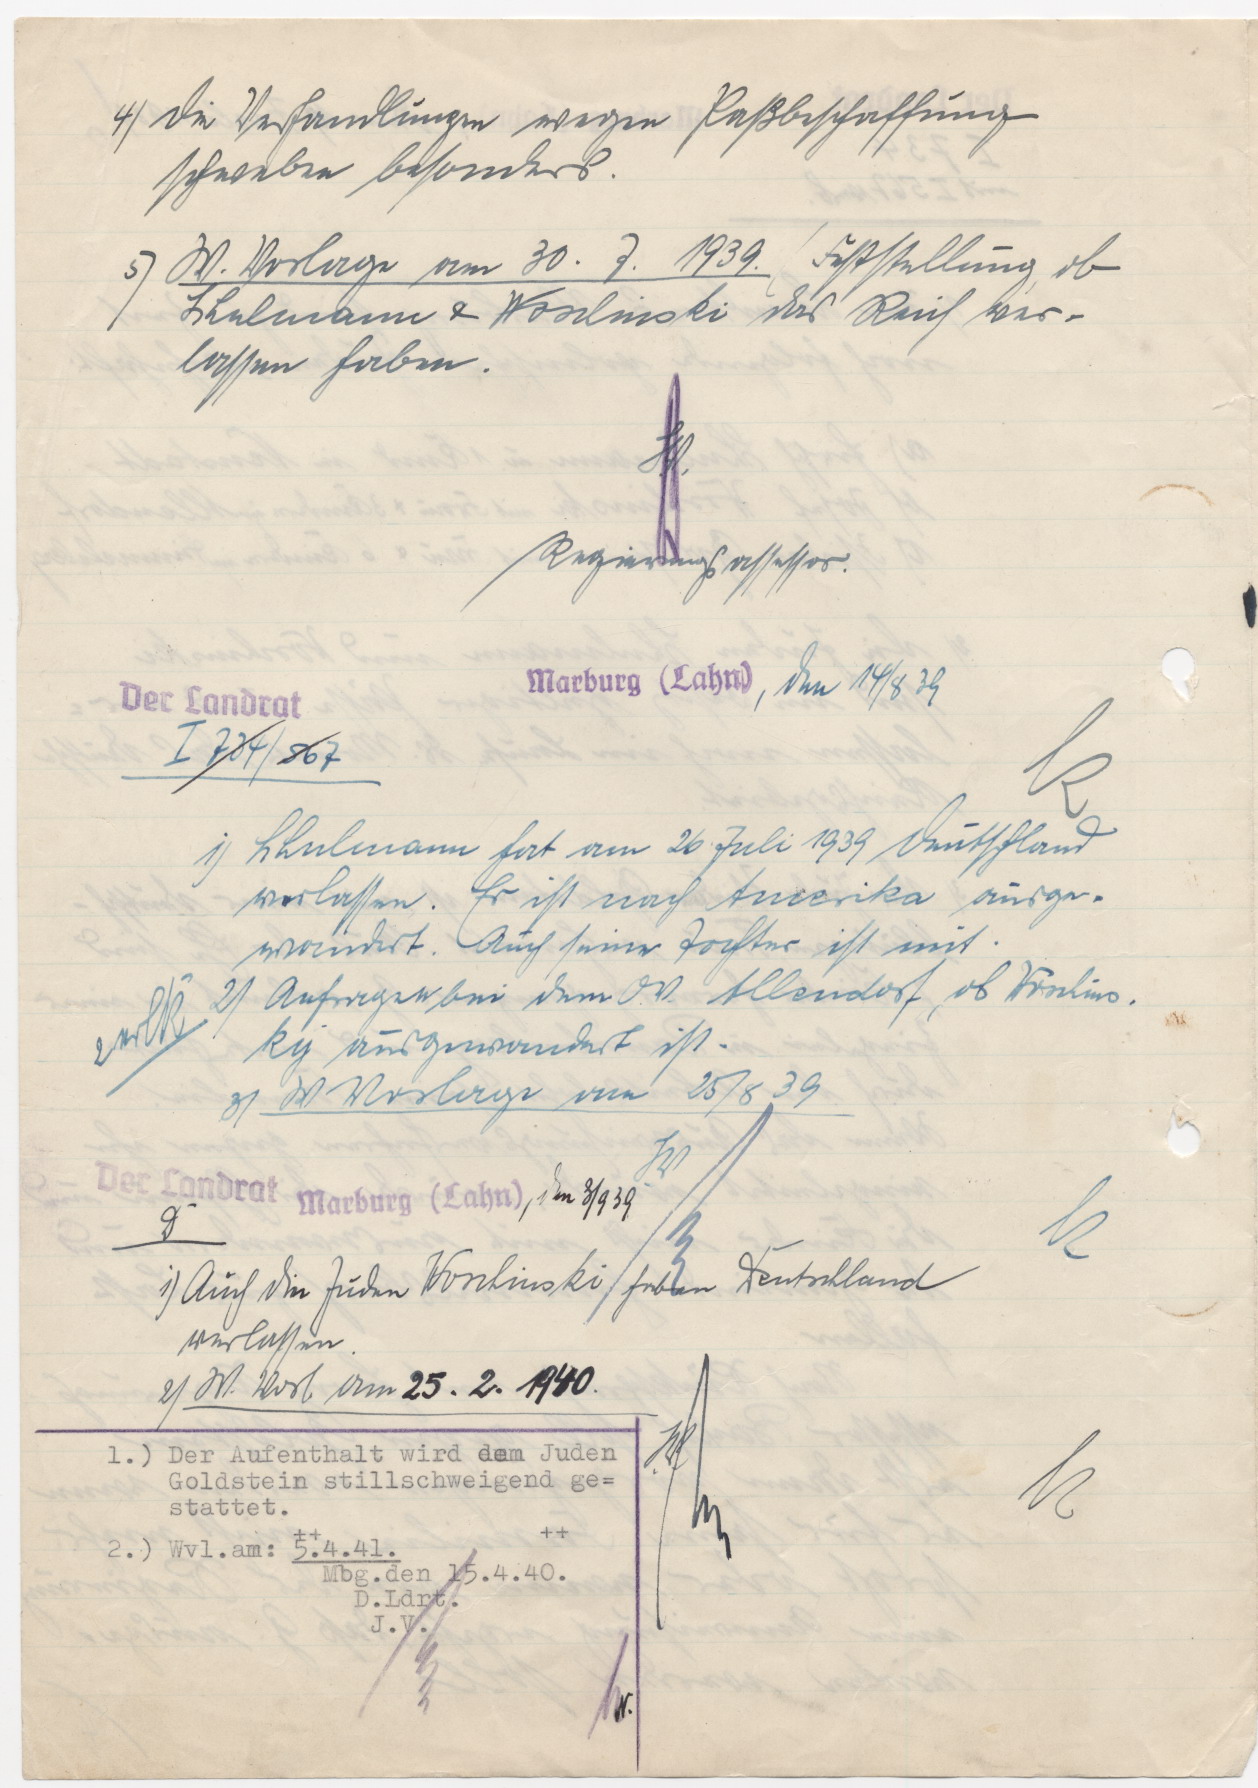 4) Die Verhandlungen wegen Paßbeschaffung
schweben besonders.
5) W. Vorlage am 30. 7. 1939. Feststellung, ob
& Woslinski das Reich ver-
lassen haben.
Regierungsassessor.
Marburg (Lahn), den 14/8 39
Der Landrat
I 734/867
1) hat am 26. Juli 1939 Deutschland
verlassen. Er ist nach Amerika ausge-
wandert. Auch seine Tochter ist mit.
2) Anfragen bei dem O.V. Allendorf, ob Woslins-
ky ausgewandert ist.
3) W Vorlage am 25/8 39
Der Landrat Marburg (Lahn), den 3/9 39
1) Auch die Juden Woslinski haben Deutschland
verlassen.
2) W. Vorl am 25. 2. 1940.
1.) Der Aufenthalt wird dem Juden
Goldstein stillschweigend ge=
stattet.
++ ++
2.) Wvl.am: 5.4.41.
Mbg.den 15.4.40.
D.Ldrt.
J.V.